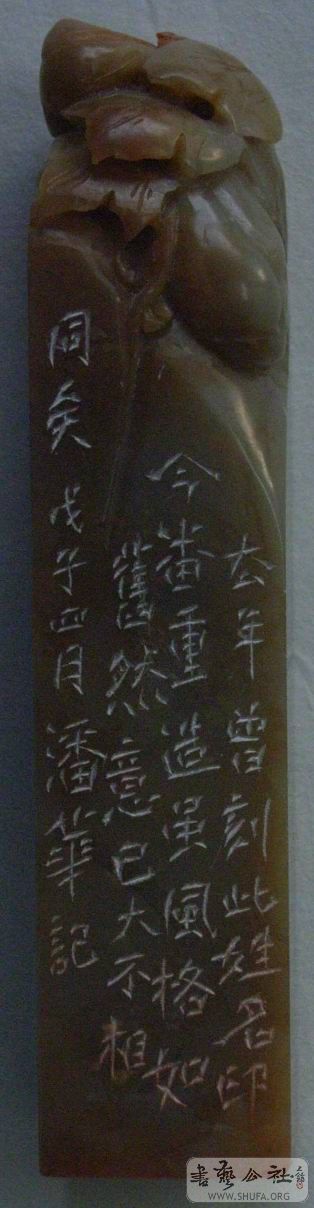 去年曾刻此姓名印
今番重造虽風格如
舊然意已大不相
同矣 戊子四月潘華記
書藝公社
WWW.SHUFA.ORG